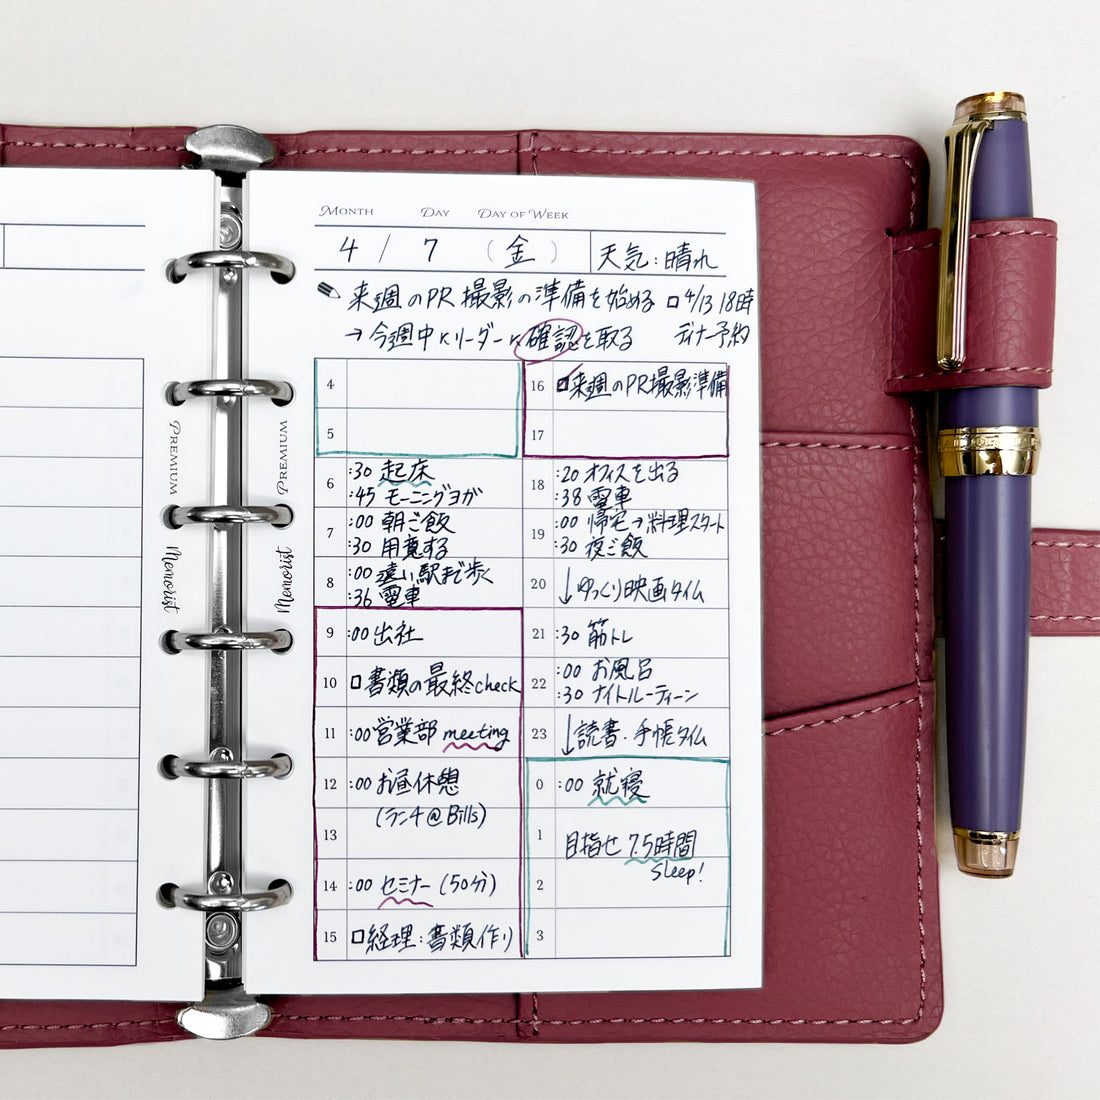 MONTH DAY DAY OF WEEK
4 / 7 (金) 天気:晴れ
来週のPR撮影の準備を始める □4/13 18時
→今週中にリーダーに確認を取る ディナー予約
4
5
6 :30 起床
:45 モーニングヨガ
7 :00 朝ご飯
:30 用意する
8 :00 遠い駅まで歩く
:36 電車
9 :00 出社
10 □書類の最終check
11 :00 営業部 meeting
12 :00 お昼休憩
(ランチ@Bills)
13
14 :00 セミナー(50分)
15 □経理:書類作り
16 □来週のPR撮影準備
17
18 :20 オフィスを出る
:38 電車
19 :00 帰宅→料理スタート
:30 夜ご飯
20 ↓ゆっくり映画タイム
21 :30 筋トレ
22 :00 お風呂
:30 ナイトルーティーン
23 ↓読書・手帳タイム
0 :00 就寝
1 目指せ 7.5時間
Sleep!
2
3
PREMIUM Memorist
PREMIUM Memorist